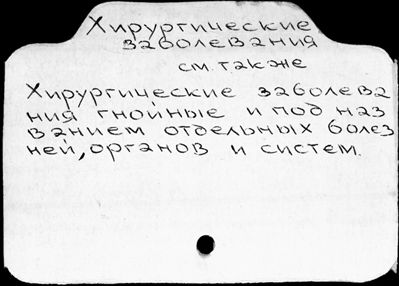 Хирургические
заболевания
см. также
Хирургические заболева
ния гнойные и под наз
ванием отдельных болез
ней, органов и систем.